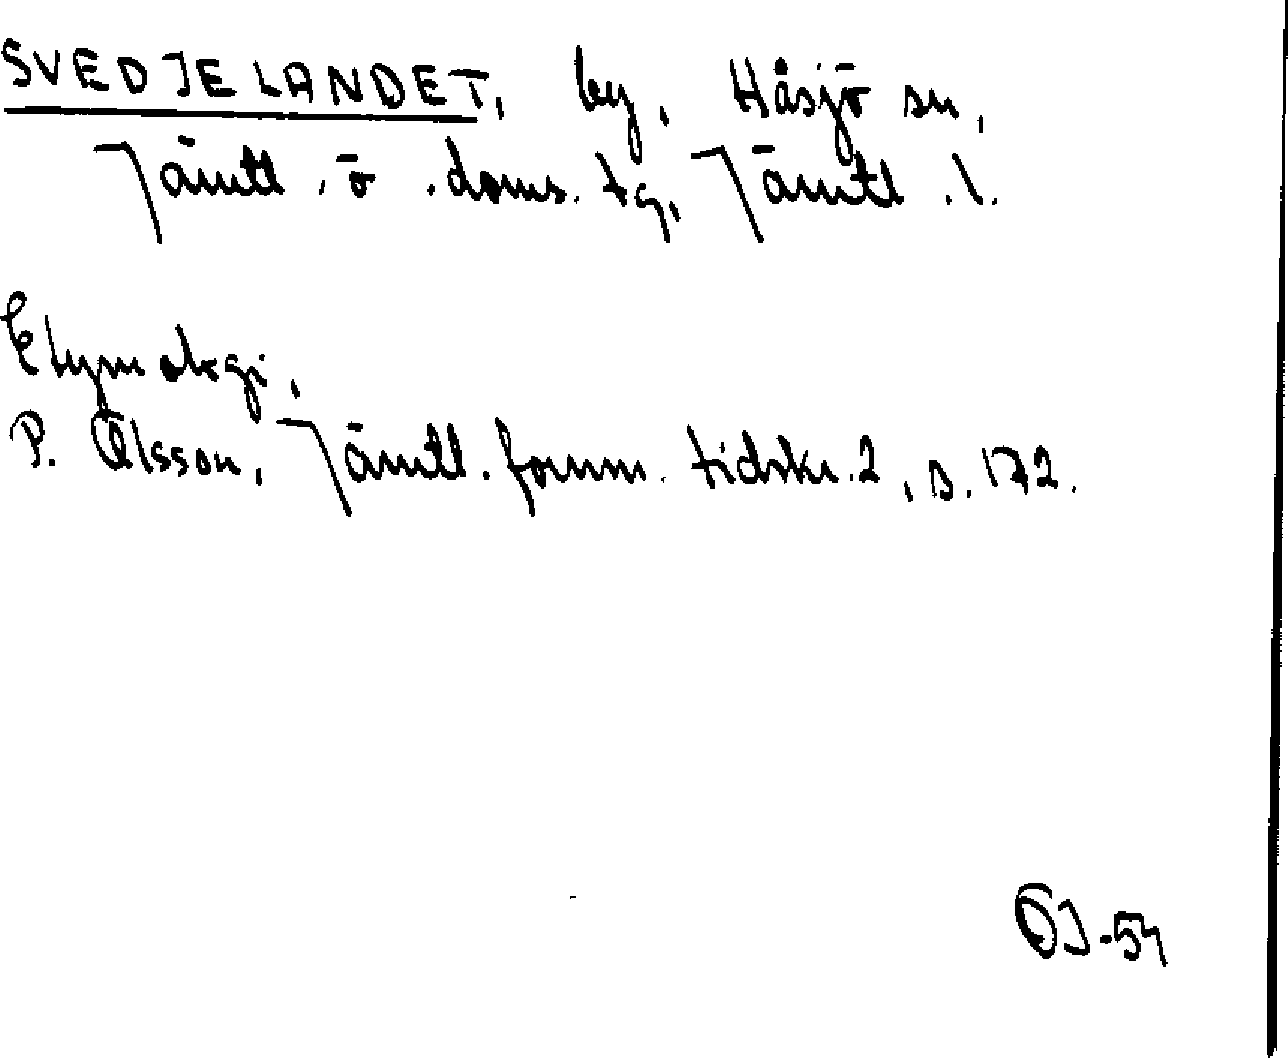 SVEDJELANDET, by, Håsjö sn,
Jämtl. ö. doms. tg, Jämtl. l.
Etymologi,
P. Olsson, Jämtl. fornm. tidskr. 2, s. 172.
ÖJ-54